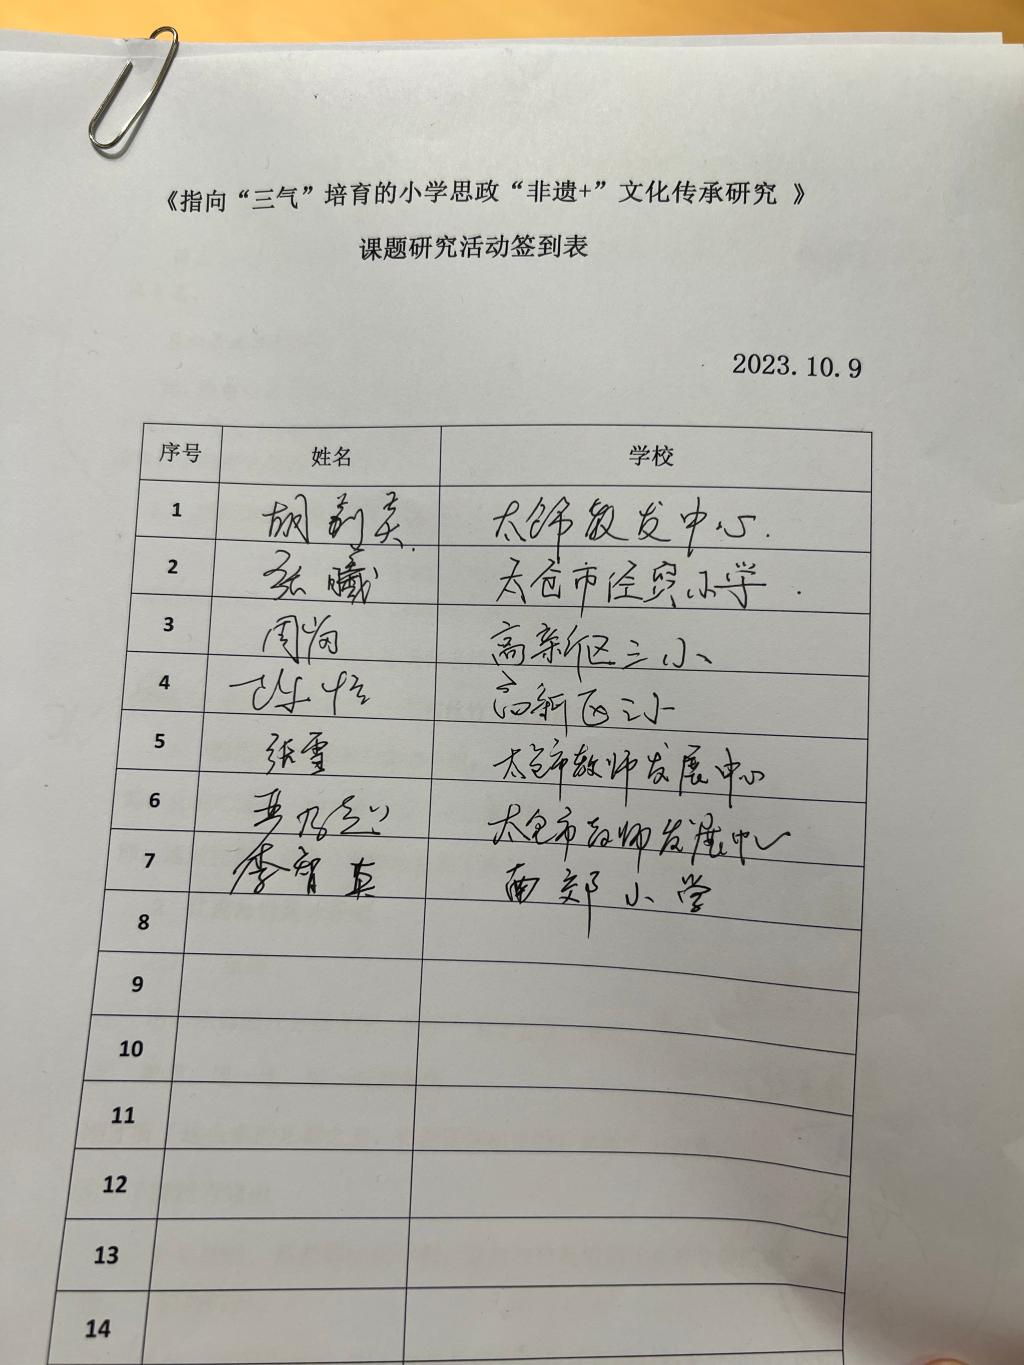 《指向“三气”培育的小学思政“非遗+”文化传承研究 》
课题研究活动签到表
2023.10.9
序号 姓名 学校
1 胡 太仓市教发中心.
2 张曦 太仓市经贸小学.
3 周 高新区三小
4 陈恺 高新区三小
5 张雪 太仓市教师发展中心
6 太仓市教师发展中心
7 李智真 南郊小学
8
9
10
11
12
13
14